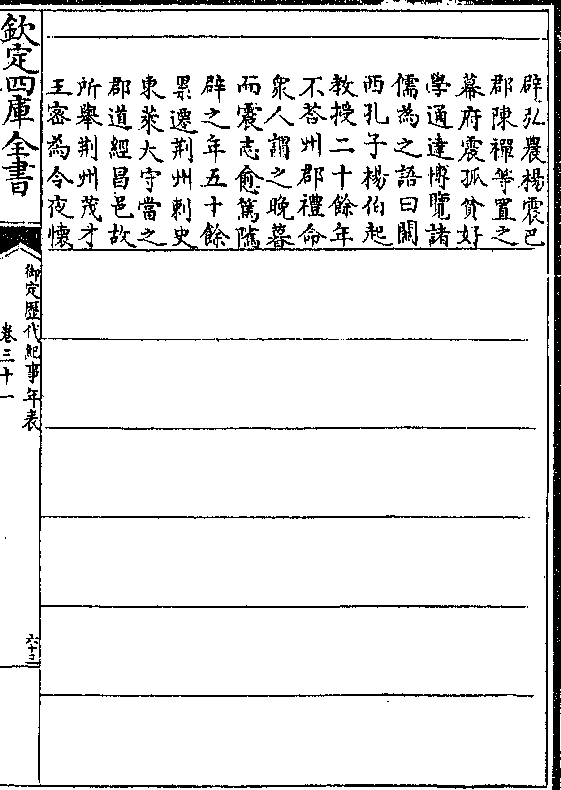 辟弘農楊震巴
郡陳禪等置之
幕府震孤貧好
學通達博覽諸
儒為之語曰關
西孔子楊伯起
教授二十餘年
不荅州郡禮命
衆人謂之晚暮
而震志愈篤隲
辟之年五十餘
累遷荆州刺史
東萊大守當之
郡道經昌邑故
所舉荆州茂才
王宻為令夜懐
欽定四庫全書
御定歴代紀事年表
卷三十一
六十三